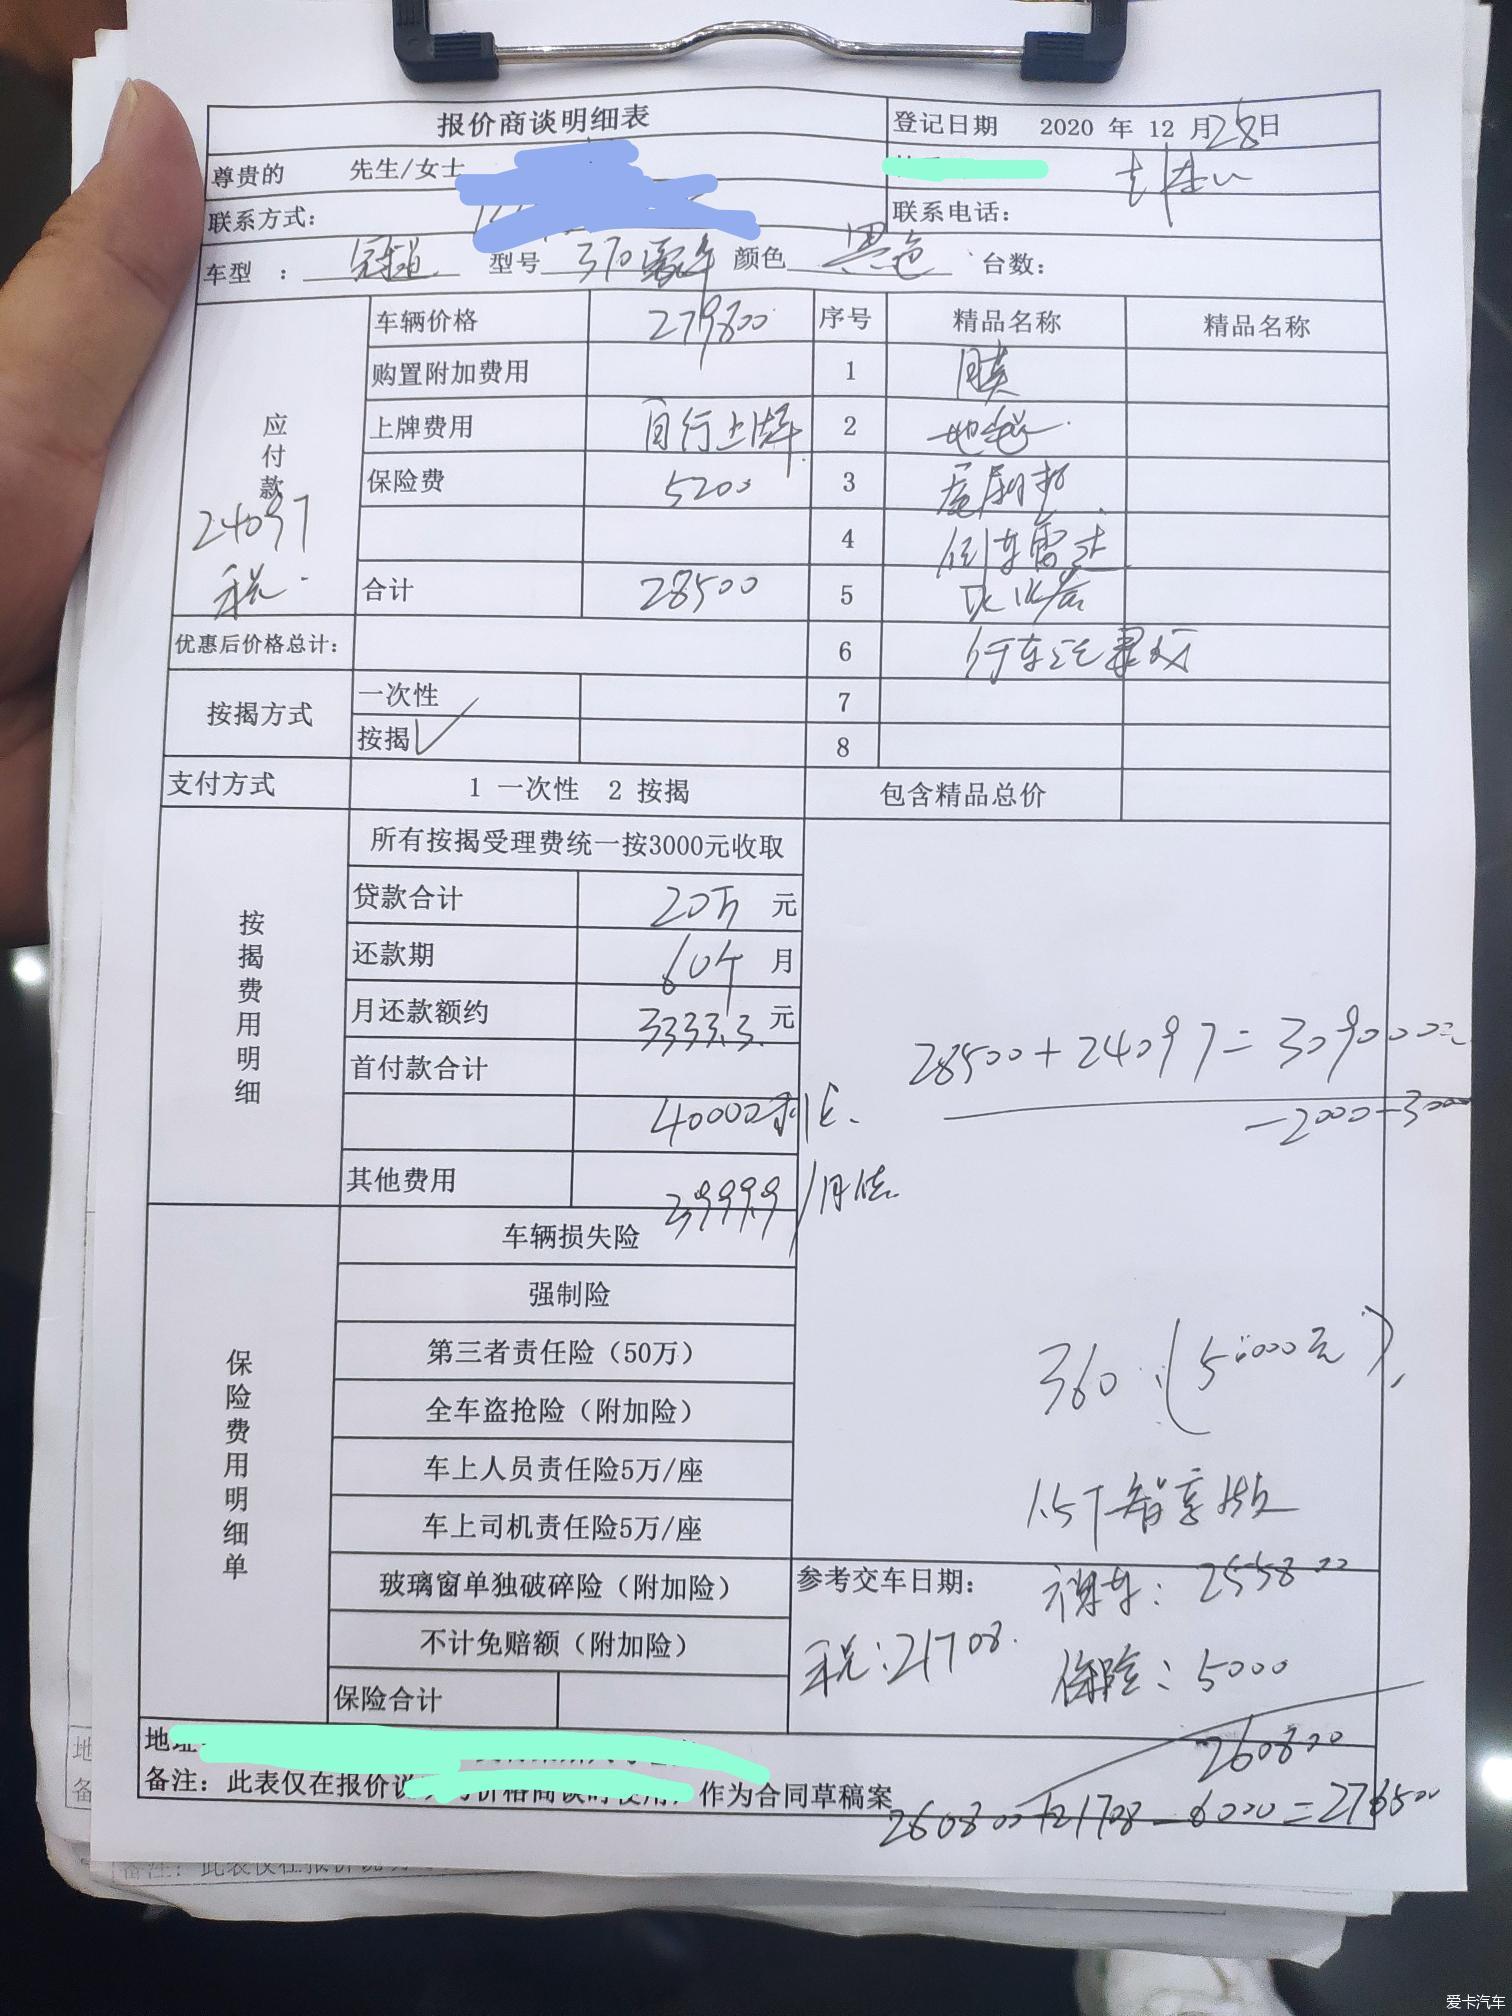 报价商谈明细表 登记日期 2020 年 12 月 28 日
尊贵的 先生/女士
联系方式： 联系电话：
车型 ： 冠道 型号 370 颜色 黑色 台数：
应付款 车辆价格 279800 序号 精品名称 精品名称
购置附加费用 1 膜
上牌费用 自行上牌 2 地毯
保险费 5200 3
24097 税 4 倒车雷达
合计 28500 5
优惠后价格总计： 6 行车记录仪
按揭方式 一次性 7
按揭 ✓ 8
支付方式 1 一次性 2 按揭 包含精品总价
按揭费用明细 所有按揭受理费统一按3000元收取
贷款合计 20万 元
还款期 60个 月
月还款额约 3333.3 元
28500+24097=309000元
首付款合计
-2000-3000
40000利息
其他费用 3999.9/月供
保险费用明细单 车辆损失险
强制险
第三者责任险（50万）
360 (5000元)
全车盗抢险（附加险）
车上人员责任险5万/座
1.5T智享版
车上司机责任险5万/座
玻璃窗单独破碎险（附加险） 参考交车日期： 裸车：255800
不计免赔额（附加险） 税：21708 保险：5000
保险合计
260800
地址
备注：此表仅在报价 作为合同草稿案
260800+21708-6000=276500
爱卡汽车